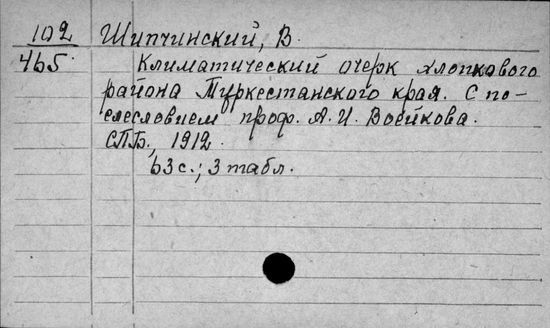 102 Шипчинский, В.
465 Климатический очерк хлопкового
района Туркестанского края. С по-
слесловием проф. А. И. Воейкова.
СПБ., 1912.
63 с.; 3 табл.